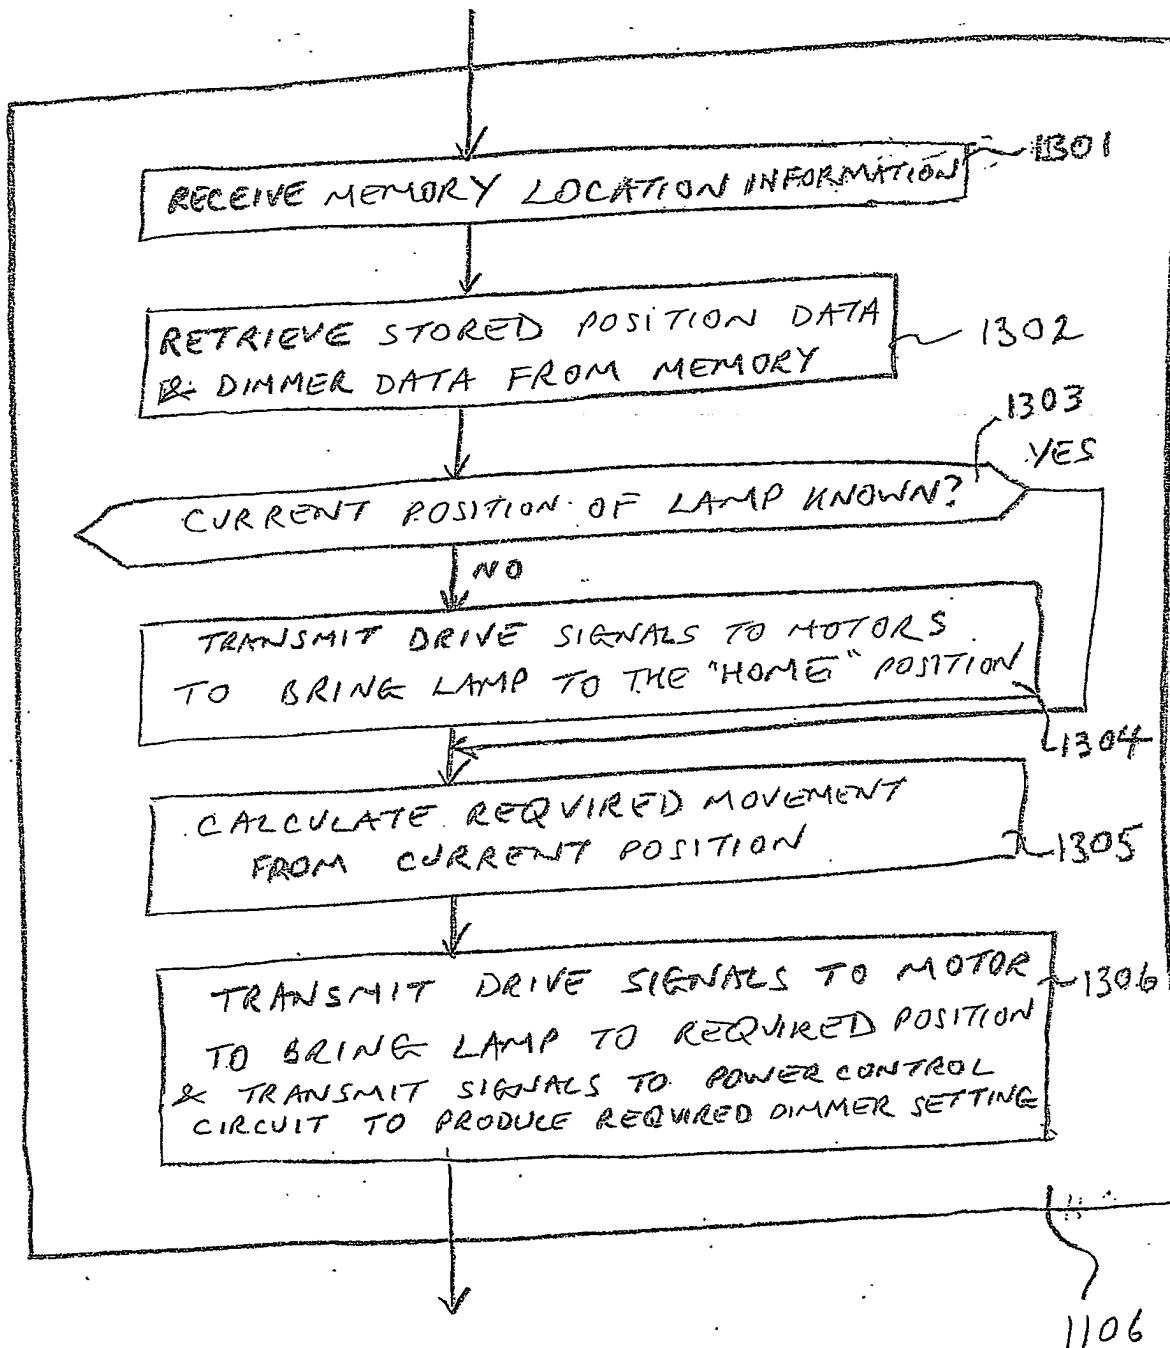 1301
RECEIVE MEMORY LOCATION INFORMATION
RETRIEVE STORED POSITION DATA
& DIMMER DATA FROM MEMORY
1302
1303
YES
CURRENT POSITION OF LAMP KNOWN?
NO
TRANSMIT DRIVE SIGNALS TO MOTORS
TO BRING LAMP TO THE "HOME" POSITION
1304
CALCULATE REQUIRED MOVEMENT
FROM CURRENT POSITION
1305
TRANSMIT DRIVE SIGNALS TO MOTOR
1306
TO BRING LAMP TO REQUIRED POSITION
& TRANSMIT SIGNALS TO POWER CONTROL
CIRCUIT TO PRODUCE REQUIRED DIMMER SETTING
1106